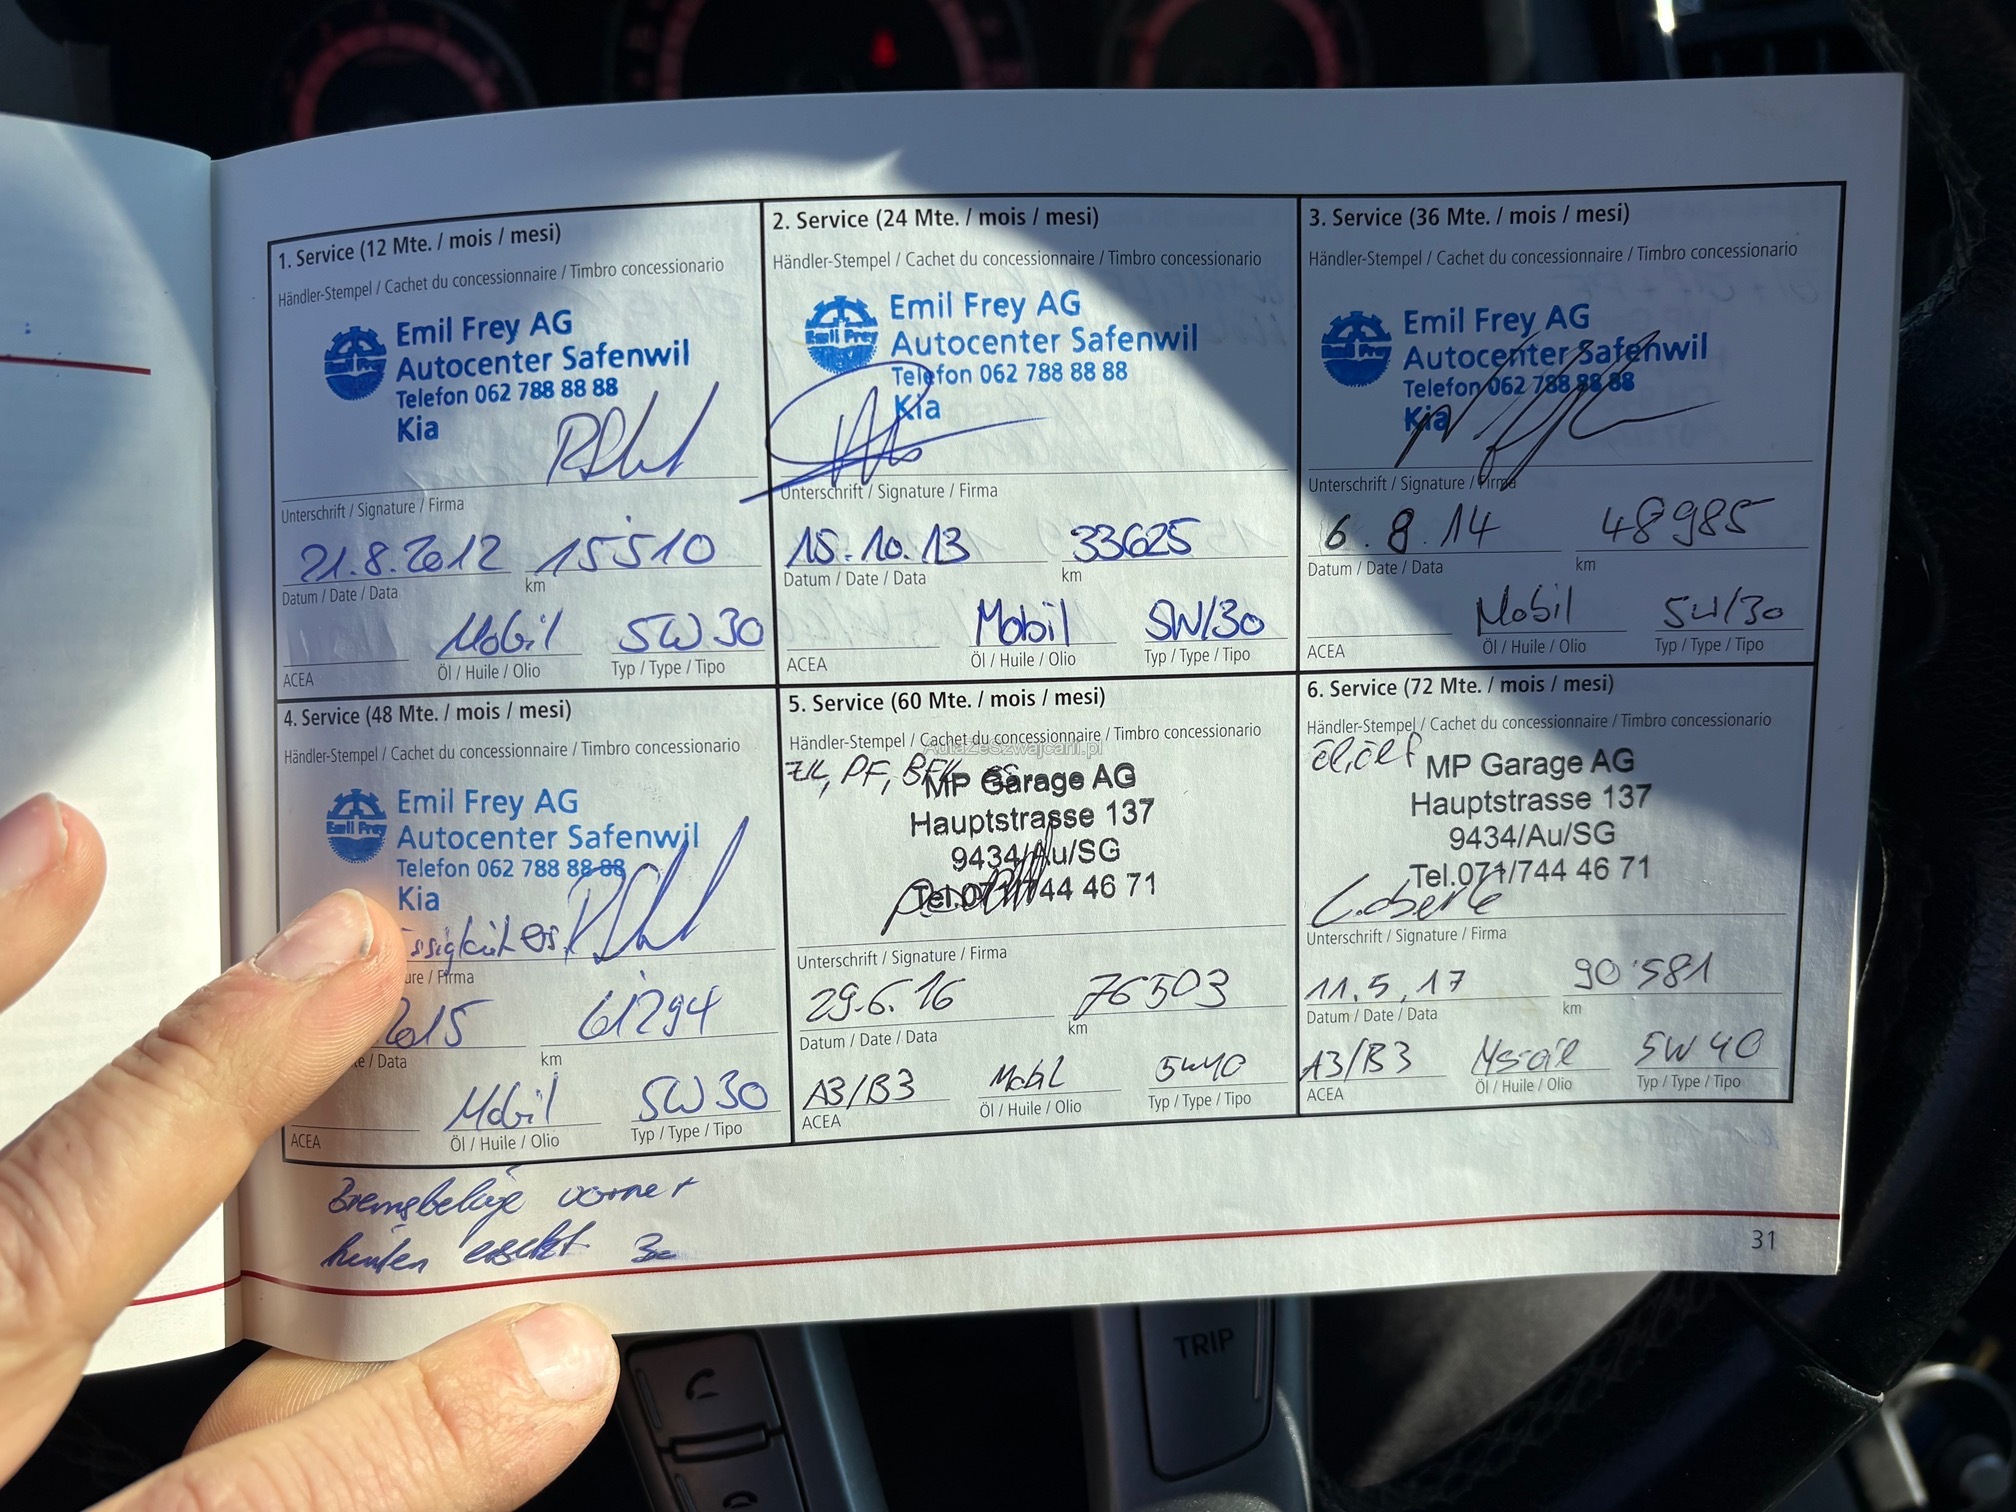 1. Service (12 Mte. / mois / mesi)
Händler-Stempel / Cachet du concessionnaire / Timbro concessionario
Emil Frey
Emil Frey AG
Autocenter Safenwil
Telefon 062 788 88 88
Kia
Unterschrift / Signature / Firma
21.8.2012 15510
Datum / Date / Data km
Mobil 5W30
ACEA Öl / Huile / Olio Typ / Type / Tipo
2. Service (24 Mte. / mois / mesi)
Händler-Stempel / Cachet du concessionnaire / Timbro concessionario
Emil Frey
Emil Frey AG
Autocenter Safenwil
Telefon 062 788 88 88
Kia
Unterschrift / Signature / Firma
15.10.13 33625
Datum / Date / Data km
Mobil 5W/30
ACEA Öl / Huile / Olio Typ / Type / Tipo
3. Service (36 Mte. / mois / mesi)
Händler-Stempel / Cachet du concessionnaire / Timbro concessionario
Emil Frey
Emil Frey AG
Autocenter Safenwil
Telefon 062 788 88 88
Kia
Unterschrift / Signature / Firma
6.8.14 48985
Datum / Date / Data km
Mobil 5W/30
ACEA Öl / Huile / Olio Typ / Type / Tipo
4. Service (48 Mte. / mois / mesi)
Händler-Stempel / Cachet du concessionnaire / Timbro concessionario
Emil Frey
Emil Frey AG
Autocenter Safenwil
Telefon 062 788 88 88
Kia
ure / Firma
2015 61294
te / Data km
Mobil 5W30
ACEA Öl / Huile / Olio Typ / Type / Tipo
5. Service (60 Mte. / mois / mesi)
Händler-Stempel / Cachet du concessionnaire / Timbro concessionario
AutaZeSzwajcarii.pl
MP Garage AG
Hauptstrasse 137
9434/Au/SG
Tel.071/744 46 71
Unterschrift / Signature / Firma
29.6.16 76503
Datum / Date / Data km
A3/B3 Mobil 5W40
ACEA Öl / Huile / Olio Typ / Type / Tipo
6. Service (72 Mte. / mois / mesi)
Händler-Stempel / Cachet du concessionnaire / Timbro concessionario
MP Garage AG
Hauptstrasse 137
9434/Au/SG
Tel.071/744 46 71
Unterschrift / Signature / Firma
11.5.17 90'581
Datum / Date / Data km
A3/B3 5W40
ACEA Öl / Huile / Olio Typ / Type / Tipo
Bremsbeläge vorne +
hinten ersetzt
31
TRIP